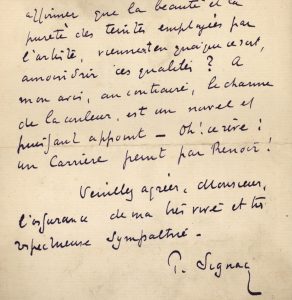 affirmer que la beauté et la
pureté des teintes employées par
l'artiste, viennent en quoi que ce soit,
amoindrir ces qualités ? A
mon avis, au contraire, le charme
de la couleur, est un nouvel et
puissant appoint — Oh ! ce rêve :
un Carrière peint par Renoir !
Veuillez agréer, Monsieur,
l'assurance de ma très vive et très
respectueuse sympathie.
P. Signac